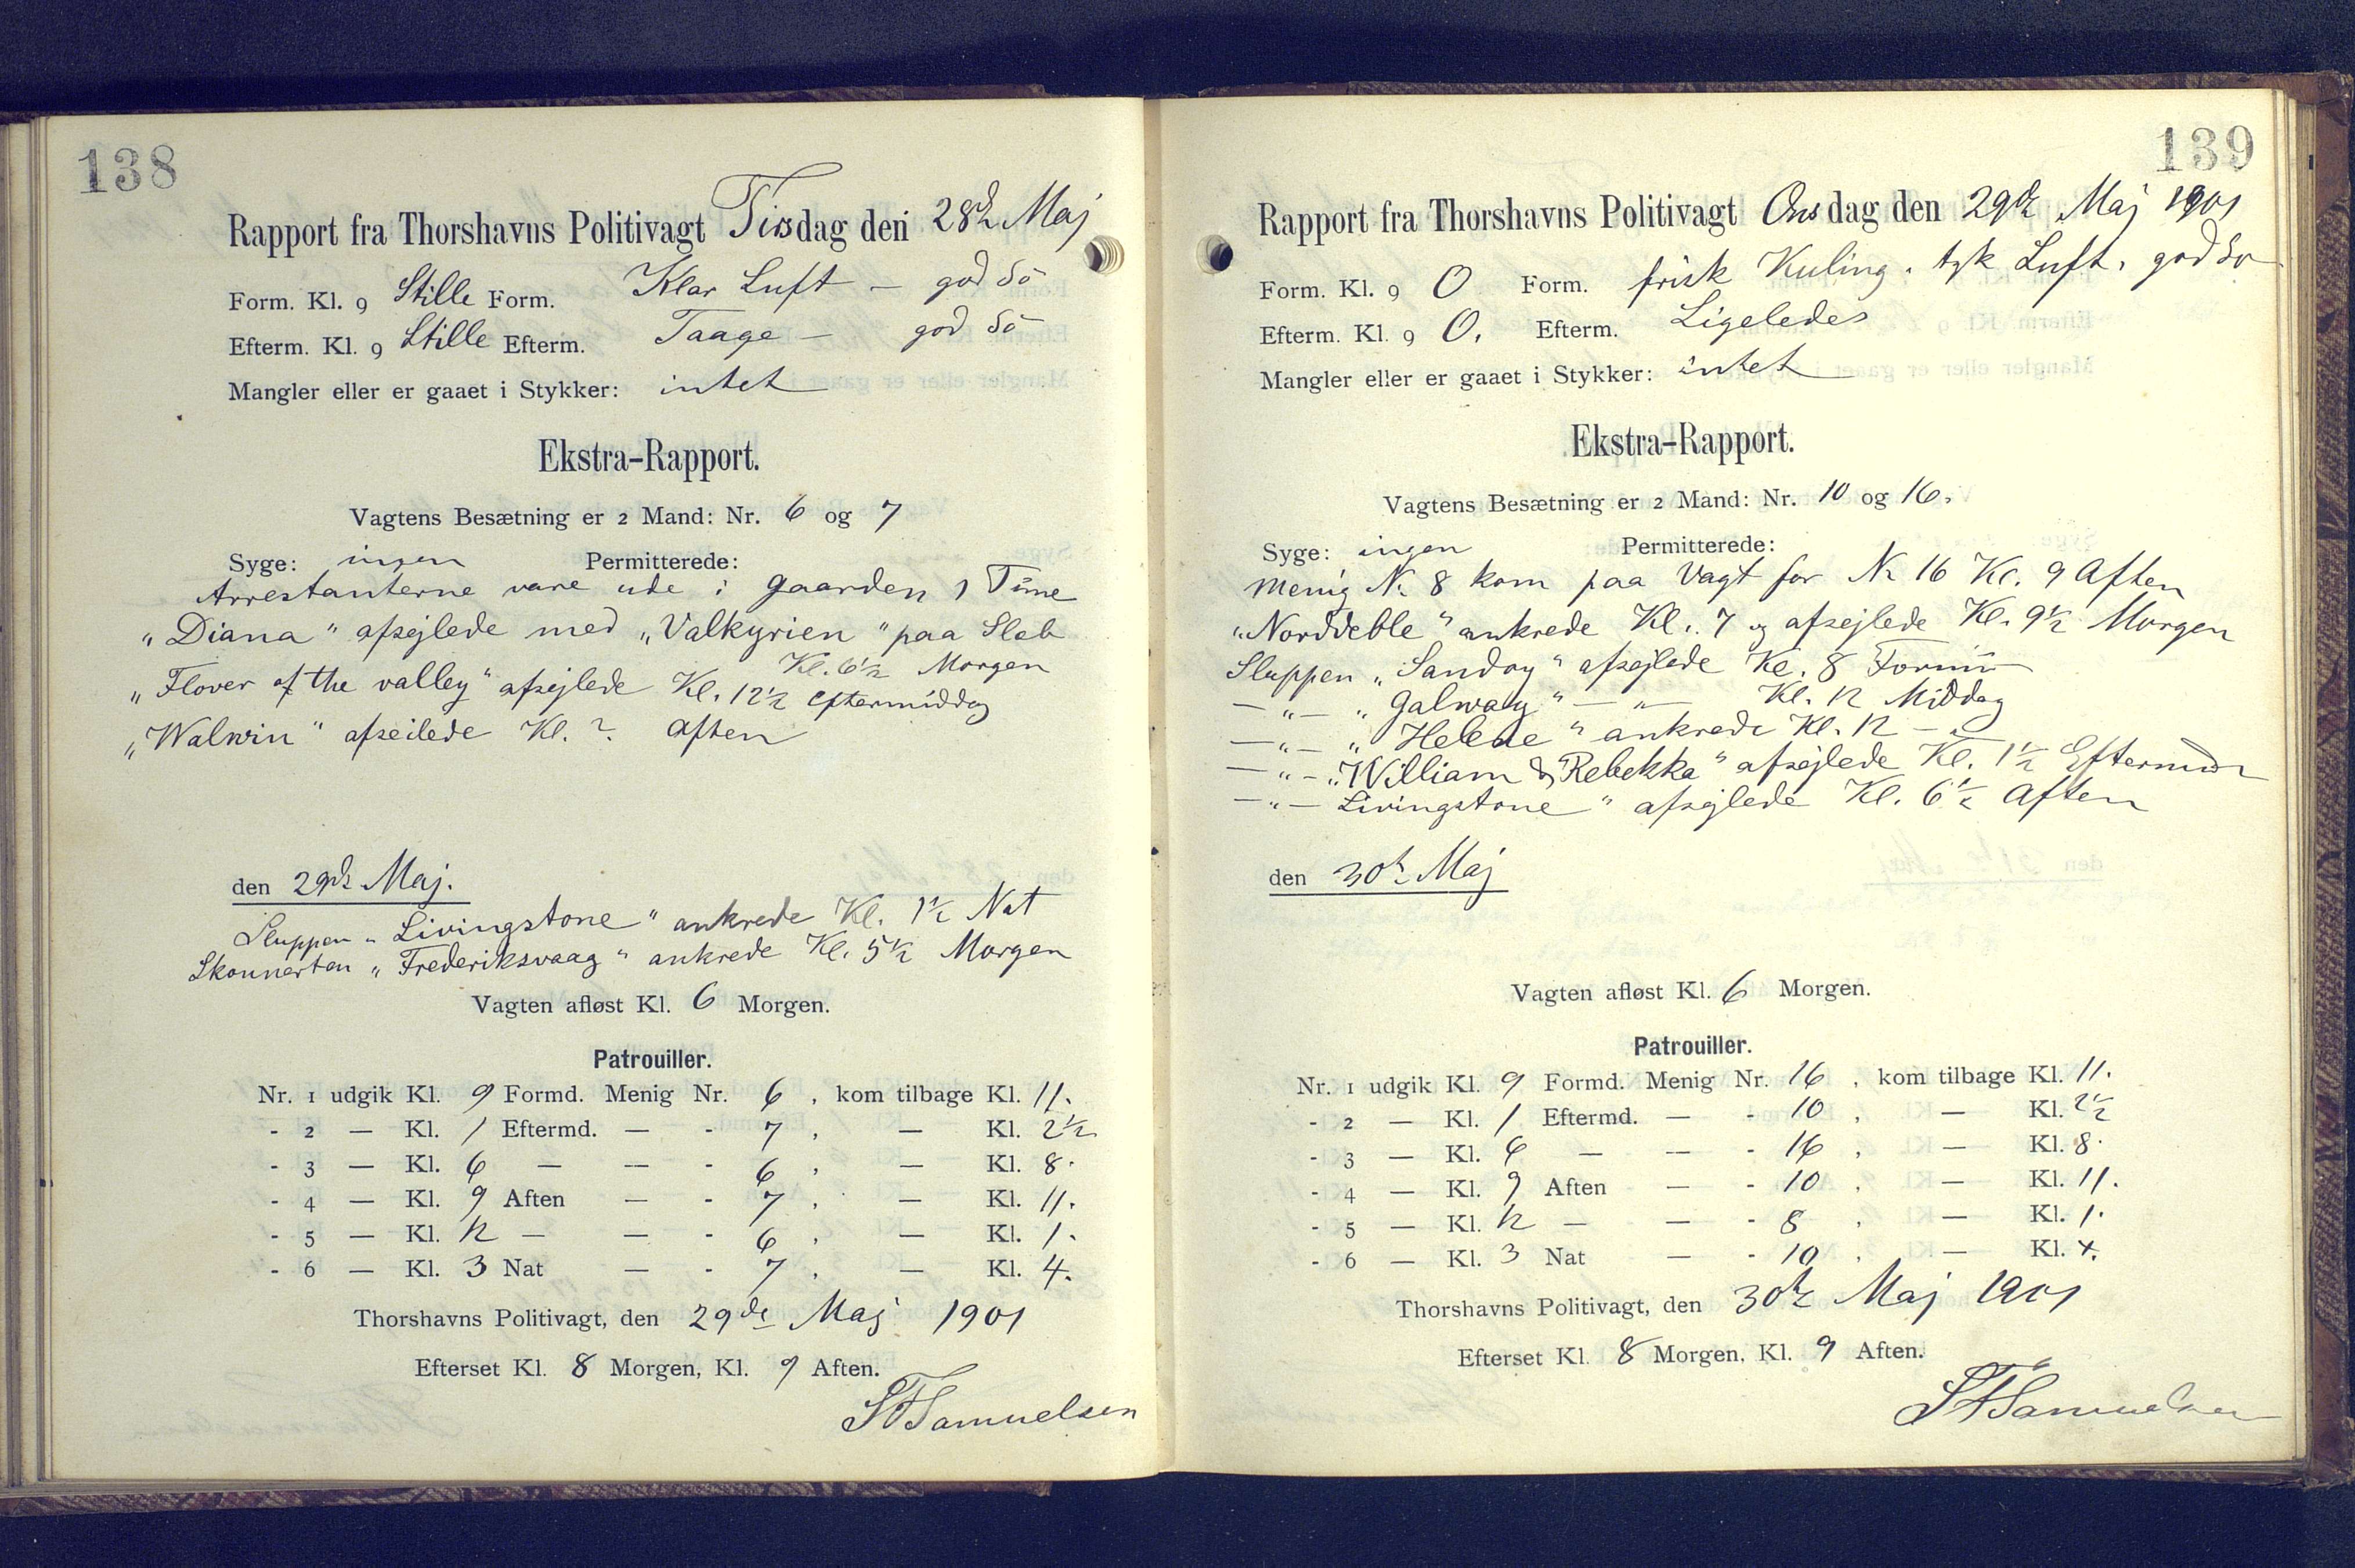 138
Rapport fra Thorshavns Politivagt Tirsdag den 28de Maj
Form. Kl. 9 Stille Form. Klar Luft — god Sø
Efterm. Kl. 9 Stille Efterm. Taage — god Sø
Mangler eller er gaaet i Stykker: intet
Ekstra-Rapport.
Vagtens Besætning er 2 Mand: Nr. 6 og 7
Syge: ingen Permitterede:
Arrestanterne vare ude i Gaarden 1 Time
"Diana" afsejlede med "Valkyrien" paa Slæb
Kl. 6½ Morgen
"Flover of the valley" afsejlede Kl. 12½ Eftermiddag
"Walwin" afseilede Kl. ? Aften
den 29de Maj.
Sluppen "Livingstone" ankrede Kl. 1½ Nat
Skonnerten "Frederiksvaag" ankrede Kl. 5½ Morgen
Vagten afløst Kl. 6 Morgen.
Patrouiller.
Nr. 1 udgik Kl. 9 Formd. Menig Nr. 6, kom tilbage Kl. 11.
- 2 — Kl. 1 Eftermd. — - 7, — Kl. 2½
- 3 — Kl. 6 — — - 6, — Kl. 8.
- 4 — Kl. 9 Aften — - 7, — Kl. 11.
- 5 — Kl. 12 — — - 6, — Kl. 1.
- 6 — Kl. 3 Nat — - 7, — Kl. 4.
Thorshavns Politivagt, den 29de Maj 1901
Efterset Kl. 8 Morgen, Kl. 9 Aften.
SFSamuelsen
139
Rapport fra Thorshavns Politivagt Onsdag den 29de Maj 1901
Form. Kl. 9 O Form. frisk Kuling. tyk Luft. god Sø
Efterm. Kl. 9 O. Efterm. Ligeledes
Mangler eller er gaaet i Stykker: intet
Ekstra-Rapport.
Vagtens Besætning er 2 Mand: Nr. 10 og 16.
Syge: ingen Permitterede:
Menig Nr 8 kom paa Vagt for Nr 16 Kl. 9 Aften
"Norddeble" ankrede Kl. 7 og afsejlede Kl. 9½ Morgen
Sluppen "Sandoy" afsejlede Kl. 8 Form
— " — "Galway" — " — Kl. 12 Middag
— " — "Helene" ankrede Kl. 12 — "
— " — "William & Rebekka" afsejlede Kl. 1½ Eftermid
— " — Livingstone" afsejlede Kl. 6½ Aften
den 30te Maj
Vagten afløst Kl. 6 Morgen.
Patrouiller.
Nr. 1 udgik Kl. 9 Formd. Menig Nr. 16, kom tilbage Kl. 11.
- 2 — Kl. 1 Eftermd. — - 10, — Kl. 2½
- 3 — Kl. 6 — — - 16, — Kl. 8.
- 4 — Kl. 9 Aften — - 10, — Kl. 11.
- 5 — Kl. 12 — — - 8, — Kl. 1.
- 6 — Kl. 3 Nat — - 10, — Kl. 4.
Thorshavns Politivagt, den 30te Maj 1901
Efterset Kl. 8 Morgen, Kl. 9 Aften.
SFSamuelsen